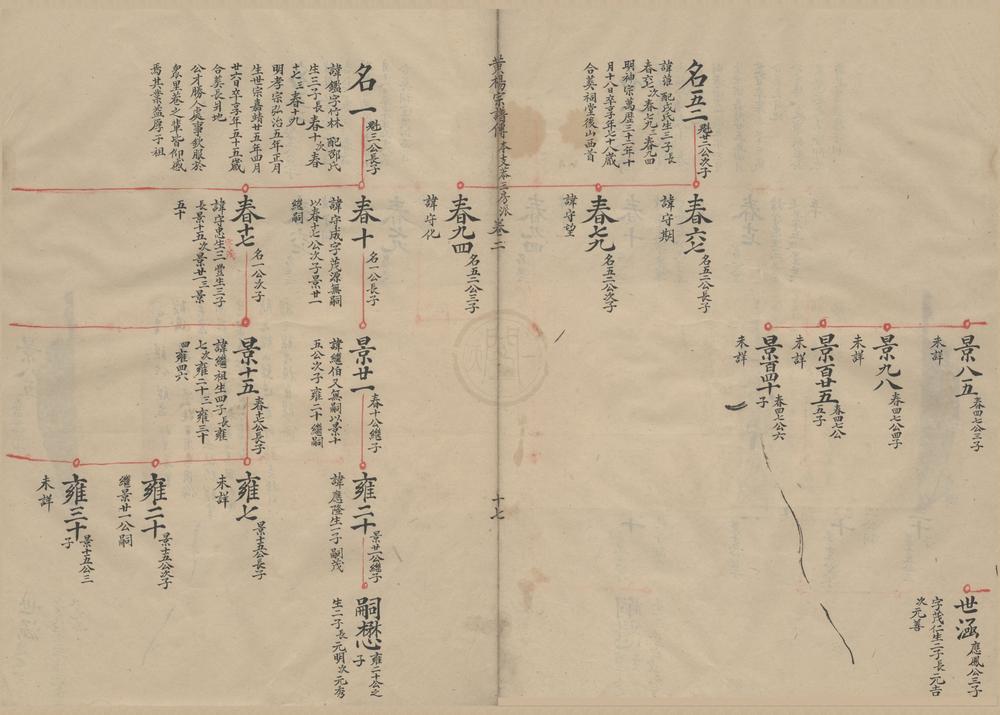 景八五
春四七公三子
未詳
景九八
春四七公四子
未詳
景百廿五
春四七公五子
未詳
景百四十
春四七公六子
未詳
世涵
應鳳公三子
字茂仁生二子長元吉
次元善
名五二
魁廿二公次子
諱淮 配戍氏生三子長
春六七次春七九三春九四
明神宗萬歷三十二年十
月十八日卒享年七十八歲
合葬祠堂後山西首
春六七
名五二公長子
諱守期
春七九
名五二公次子
諱守望
春九四
名五二公三子
諱守化
黄楊宗譜傳
本支荼三房派
卷二
十七
名一
魁三公長子
諱鑑字竹林 配邵氏
生三子長春十次春
十七三春十九
明孝宗弘治五年正月
生世宗嘉靖廿五年四月
廿六日卒享年五十五歲
合葬長爿地
公才勝人處事欽服於
衆里巷之輩皆仰感
焉其業益厚子祖
春十
名一公長子
諱守成字茂源無嗣
以春十七公次子景廿一
繼嗣
春十七
名一公次子
諱守忠生三
長景十五次景廿一三景
五十
景廿一
春十公繼子
諱繼伯又無嗣以景十
五公次子雍二十繼嗣
景十五
春十七公長子
諱繼祖生四子長雍
七次雍二十三雍三十
四雍四六
雍二十
景廿一公繼子
諱應隆生一子嗣茂
雍七
景十五公長子
未詳
雍二十
景十五公次子
繼景廿一公嗣
雍三十
景十五公三子
未詳
嗣懋
雍二十公之子
生二子長元明次元秀